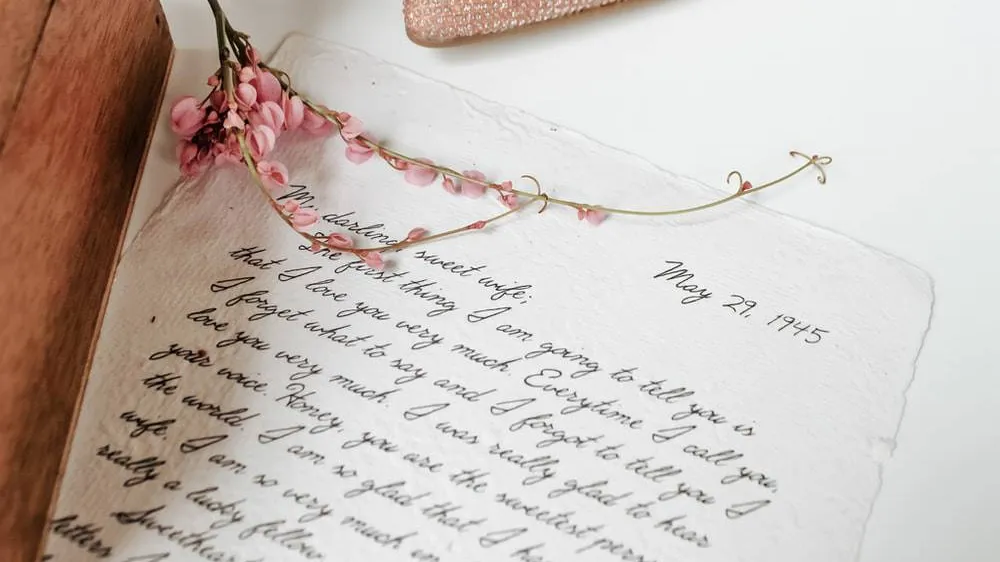 May 29, 1945
My darling, sweet wife:
The first thing I am going to tell you is
that I love you very much. Everytime I call you,
I forget what to say and I forgot to tell you I
love you very much. I was really glad to hear
your voice. Honey, you are the sweetest pers
the world. I am so glad that I
wife. I am so very much in
really a lucky fellow
Sweethear
letters